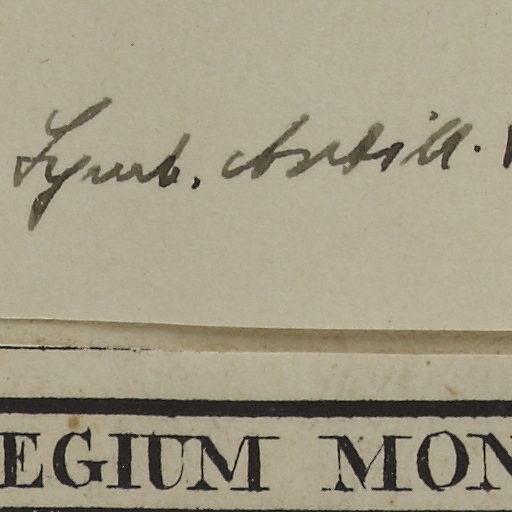 Symb. Antill.
EGIUM MON